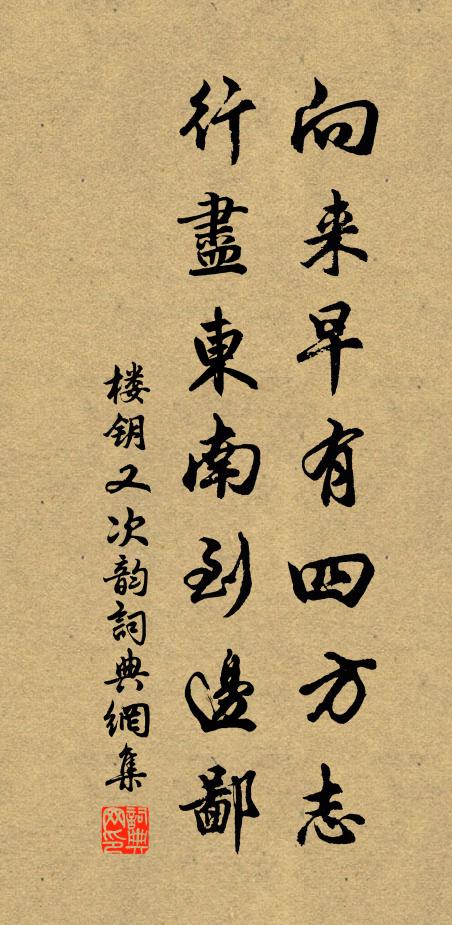 向来早有四方志
行盡東南到邊鄙
楼钥又次韵詞典網集
詞典
网印